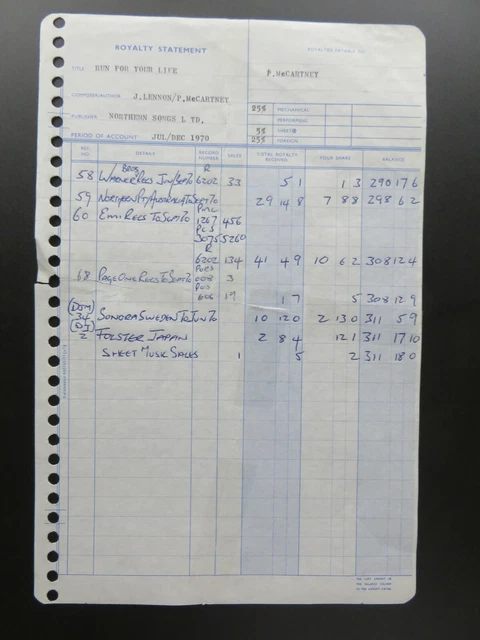 ROYALTY STATEMENT
ROYALTIES PAYABLE TO
TITLE RUN FOR YOUR LIFE
P.McCARTNEY
COMPOSER/AUTHOR J.LENNON/P.McCARTNEY
25% MECHANICAL
PUBLISHER NORTHERN SONGS L TD.
PERFORMING
5% SHEET
PERIOD OF ACCOUNT JUL/DEC 1970
25% FOREIGN
REF. NO DETAILS RECORD NUMBER SALES TOTAL ROYALTY RECEIVED YOUR SHARE BALANCE
58 WARNER BROS RECS JUN/SEPT 70 R 6202 33 5 1 1 3 290 17 6
59 NORTHERN PTY AUSTRALIA TO SEPT 70 29 14 8 7 8 8 298 6 2
60 EMI RECS TO SEPT 70 PMC 1267 456
PCS 3075 5260
R 6202 134 41 4 9 10 6 2 308 12 4
68 PAGE ONE RECS TO SEPT 70 008 3
POS 606 19 1 7 5 308 12 9
(DJM) 34 SONORA SWEDEN TO JUN 70 10 12 0 2 13 0 311 5 9
(DJ) 2 FOLSTER JAPAN 2 8 4 12 1 311 17 10
SHEET MUSIC SALES 1 5 2 311 18 0
THE LAST AMOUNT IN
THE BALANCE COLUMN
IS THE AMOUNT DUE